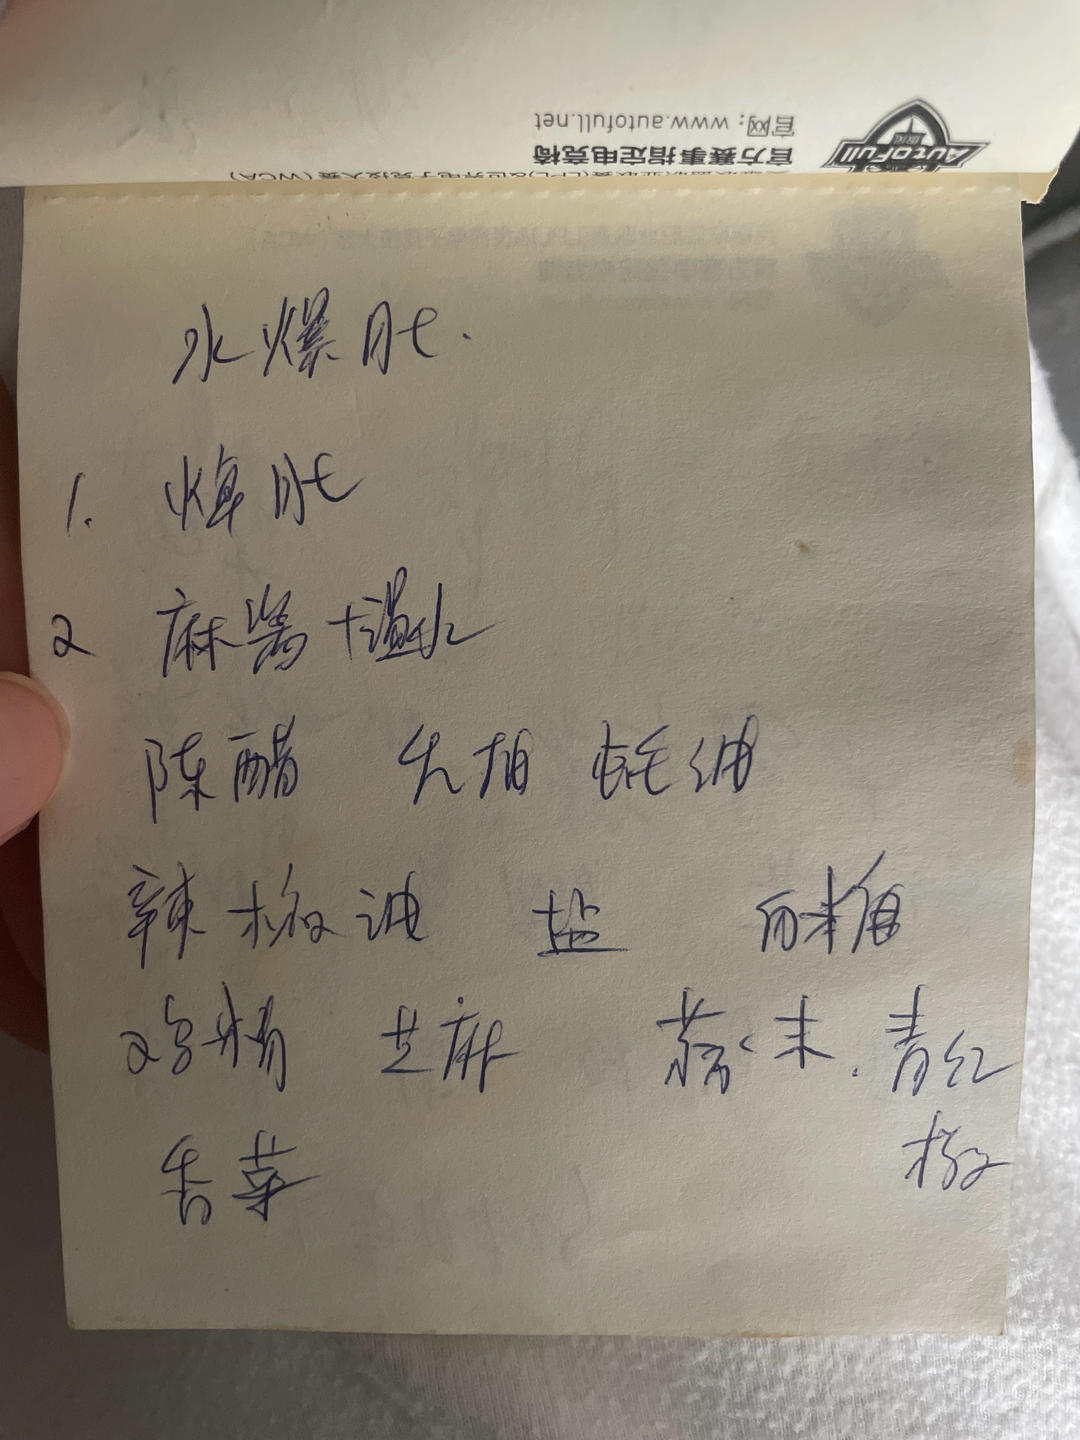 官网：www.autofull.net
官方赛事指定电竞椅
AutoFull
水爆肚.
1. 焯肚
2 麻酱+温水
陈醋 生抽 蚝油
辣椒油 盐 白糖
鸡精 芝麻 蒜末、青红
椒
香菜